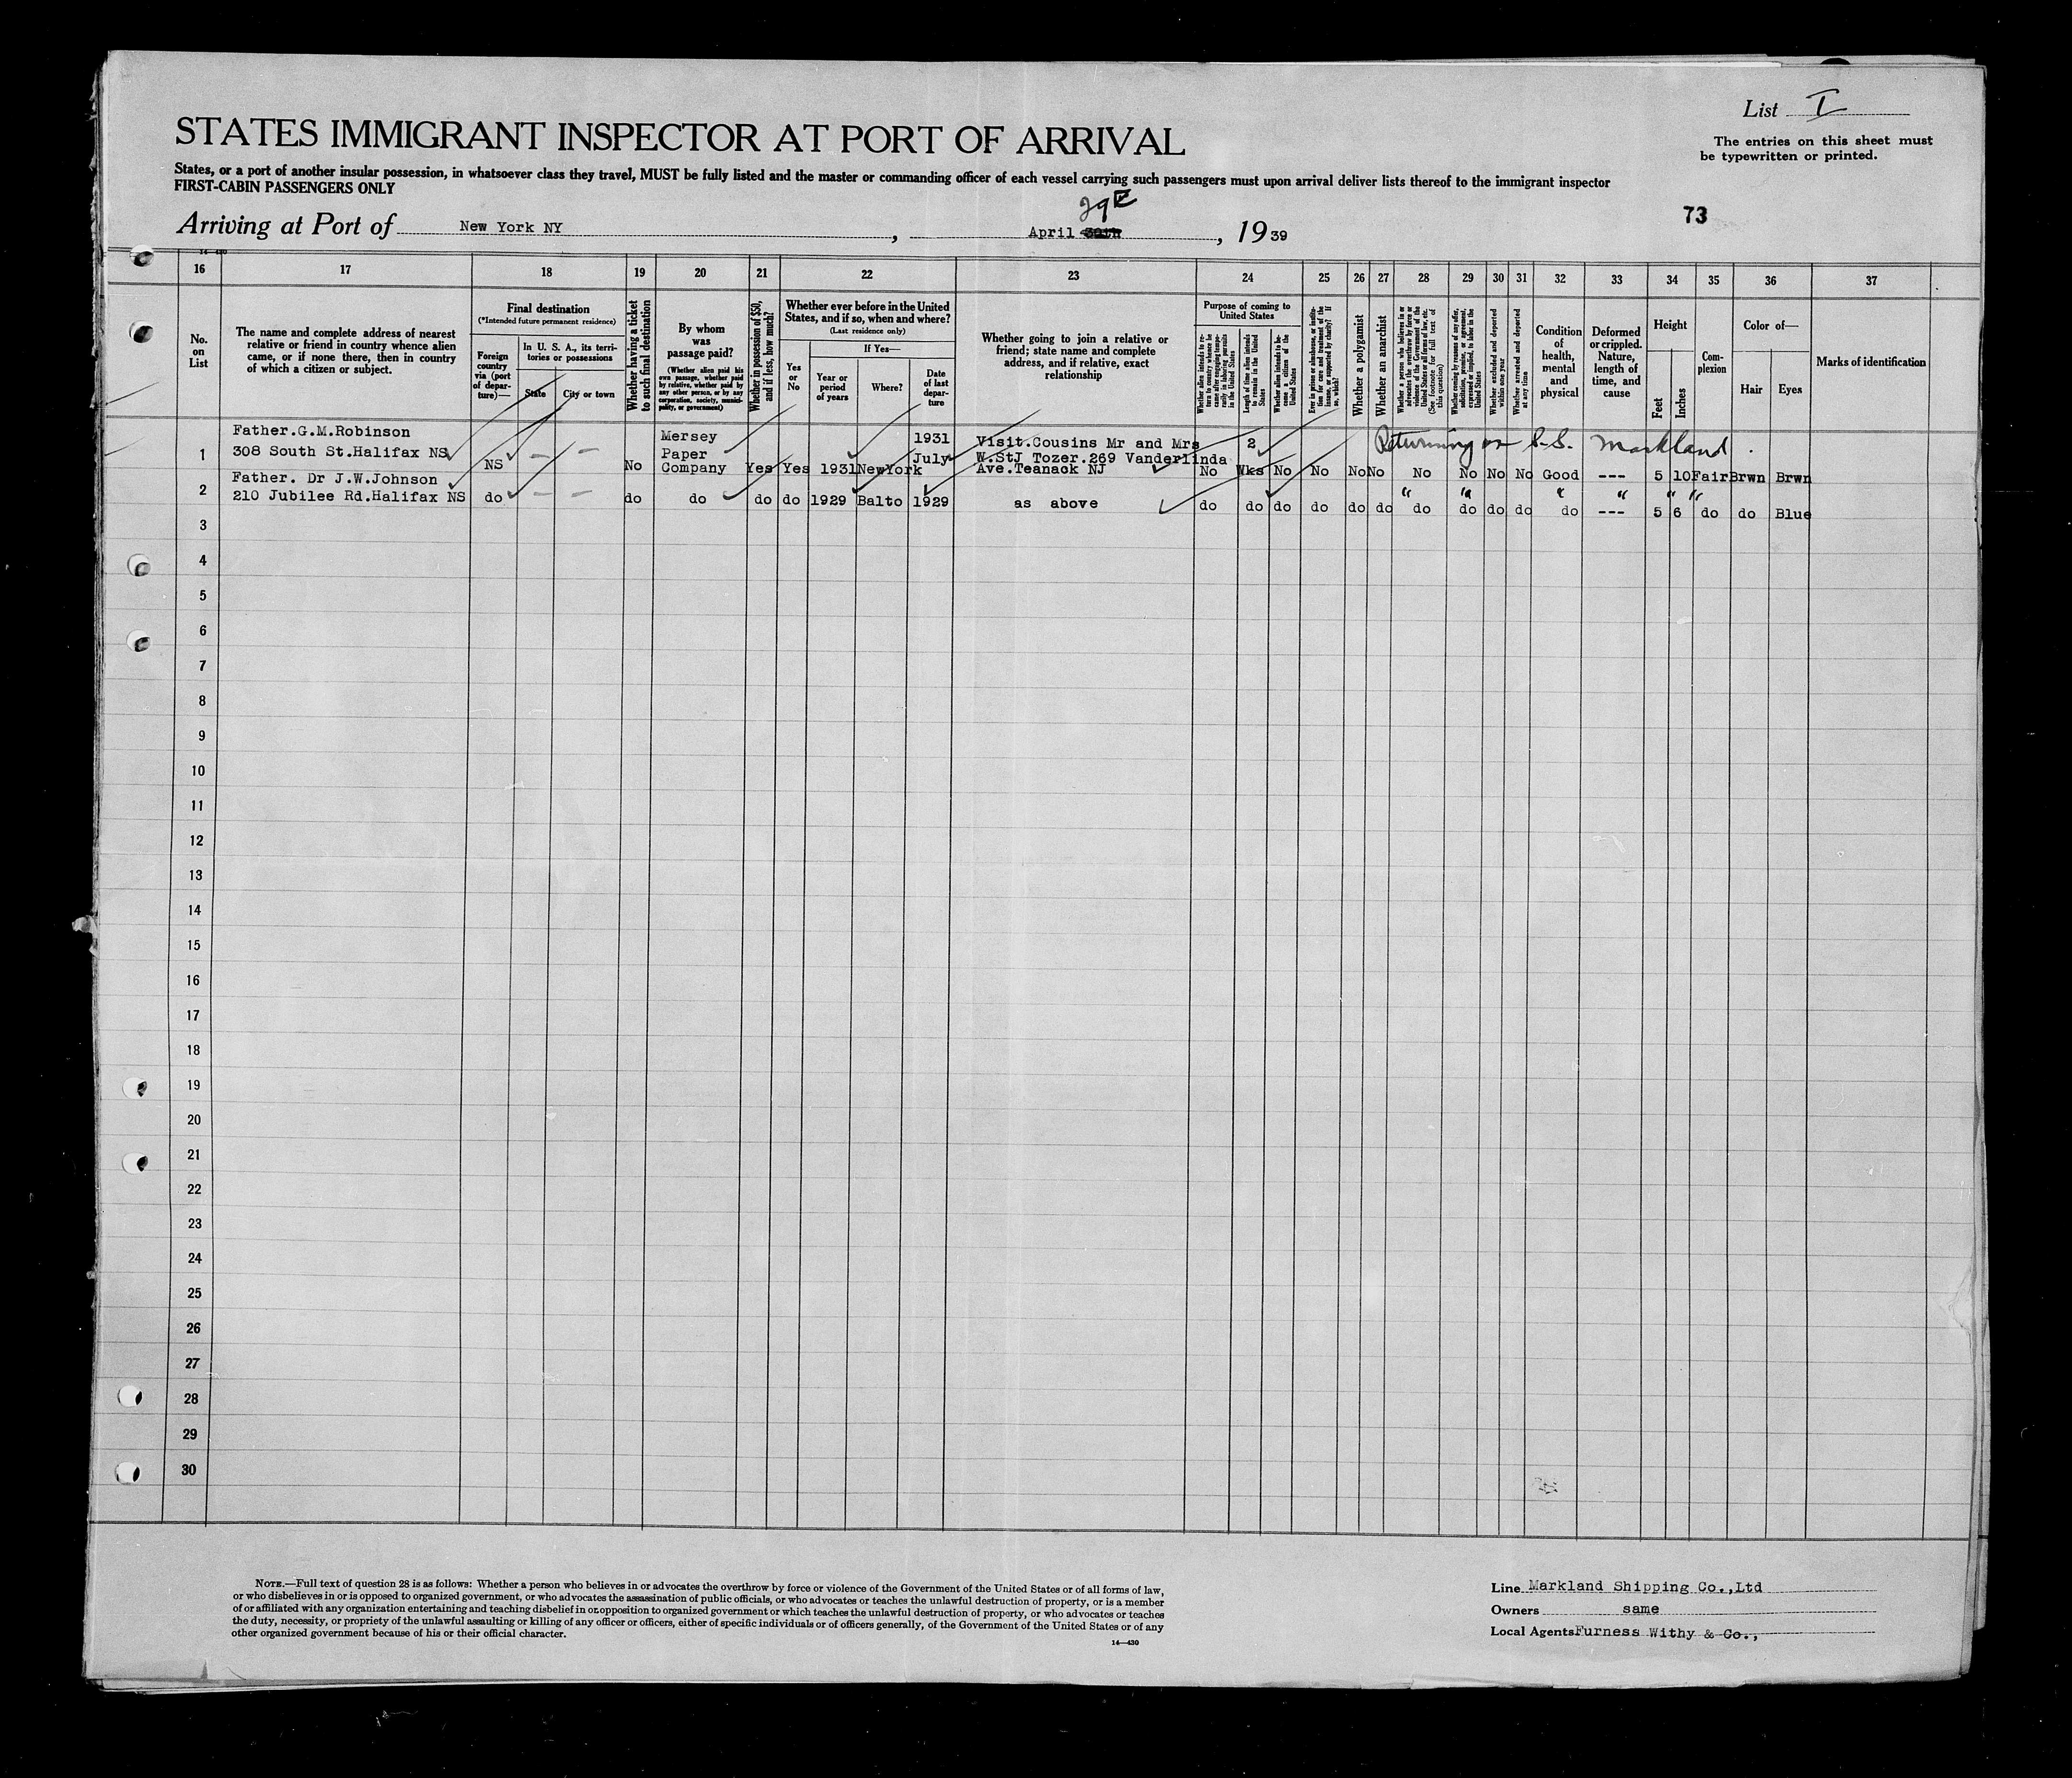 List I
The entries on this sheet must
be typewritten or printed.
STATES IMMIGRANT INSPECTOR AT PORT OF ARRIVAL
States, or a port of another insular possession, in whatsoever class they travel, MUST be fully listed and the master or commanding officer of each vessel carrying such passengers must upon arrival deliver lists thereof to the immigrant inspector
FIRST-CABIN PASSENGERS ONLY
73
29
Arriving at Port of New York NY, April 30th, 1939
16 17 18 19 20 21 22 23 24 25 26 27 28 29 30 31 32 33 34 35 36 37
No.
on
List
The name and complete address of nearest
relative or friend in country whence alien
came, or if none there, then in country
of which a citizen or subject.
Final destination
(*Intended future permanent residence)
Foreign
country
via (port
of depar-
ture)—
In U. S. A., its terri-
tories or possessions
State
City or town
Whether having a ticket
to such final destination
By whom
was
passage paid?
(Whether alien paid his
own passage, whether paid
by relative, whether paid by
any other person, or by any
corporation, society, munici-
pality, or government)
Whether in possession of $50,
and if less, how much?
Whether ever before in the United
States, and if so, when and where?
(Last residence only)
Yes
or
No
If Yes—
Year or
period
of years
Where?
Date
of last
depar-
ture
Whether going to join a relative or
friend; state name and complete
address, and if relative, exact
relationship
Purpose of coming to
United States
Whether alien intends to re-
turn to country whence he
came after engaging tempo-
rarily in laboring pursuits
in the United States
Length of time alien intends
to remain in the United
States
Whether alien intends to be-
come a citizen of the
United States
Ever in prison or almshouse, or institu-
tion for care and treatment of the
insane, or supported by charity? If
so, which?
Whether a polygamist
Whether an anarchist
Whether a person who believes in or
advocates the overthrow by force or
violence of the Government of the
United States or all forms of law, etc.
(See footnote for full text of
this question)
Whether coming by reason of any offer,
solicitation, promise, or agreement,
expressed or implied, to labor in the
United States
Whether excluded and deported
within one year
Whether arrested and deported
at any time
Condition
of
health,
mental
and
physical
Deformed
or crippled.
Nature,
length of
time, and
cause
Height
Feet
Inches
Com-
plexion
Color of—
Hair
Eyes
Marks of identification
1 Father.G.M.Robinson
308 South St.Halifax NS NS — — No Mersey
Paper
Company Yes Yes 1931 NewYork 1931
July Visit.Cousins Mr and Mrs
W.StJ Tozer.269 Vanderlinda
Ave.Teanaok NJ No 2
Wks No No No No No No No No Good --- 5 10 Fair Brwn Brwn
Returning on S.S. Markland.
2 Father. Dr J.W.Johnson
210 Jubilee Rd.Halifax NS do — — do do do do 1929 Balto 1929 as above do do do do do do do do do do do --- 5 6 do do Blue
" " " " " "
3
4
5
6
7
8
9
10
11
12
13
14
15
16
17
18
19
20
21
22
23
24
25
26
27
28
29
30
NOTE.—Full text of question 28 is as follows: Whether a person who believes in or advocates the overthrow by force or violence of the Government of the United States or of all forms of law,
or who disbelieves in or is opposed to organized government, or who advocates the assassination of public officials, or who advocates or teaches the unlawful destruction of property, or is a member
of or affiliated with any organization entertaining and teaching disbelief in or opposition to organized government or which teaches the unlawful destruction of property, or who advocates or teaches
the duty, necessity, or propriety of the unlawful assaulting or killing of any officer or officers, either of specific individuals or of officers generally, of the Government of the United States or of any
other organized government because of his or their official character.
14—430
Line Markland Shipping Co.,Ltd
Owners same
Local Agents Furness Withy & Co.,